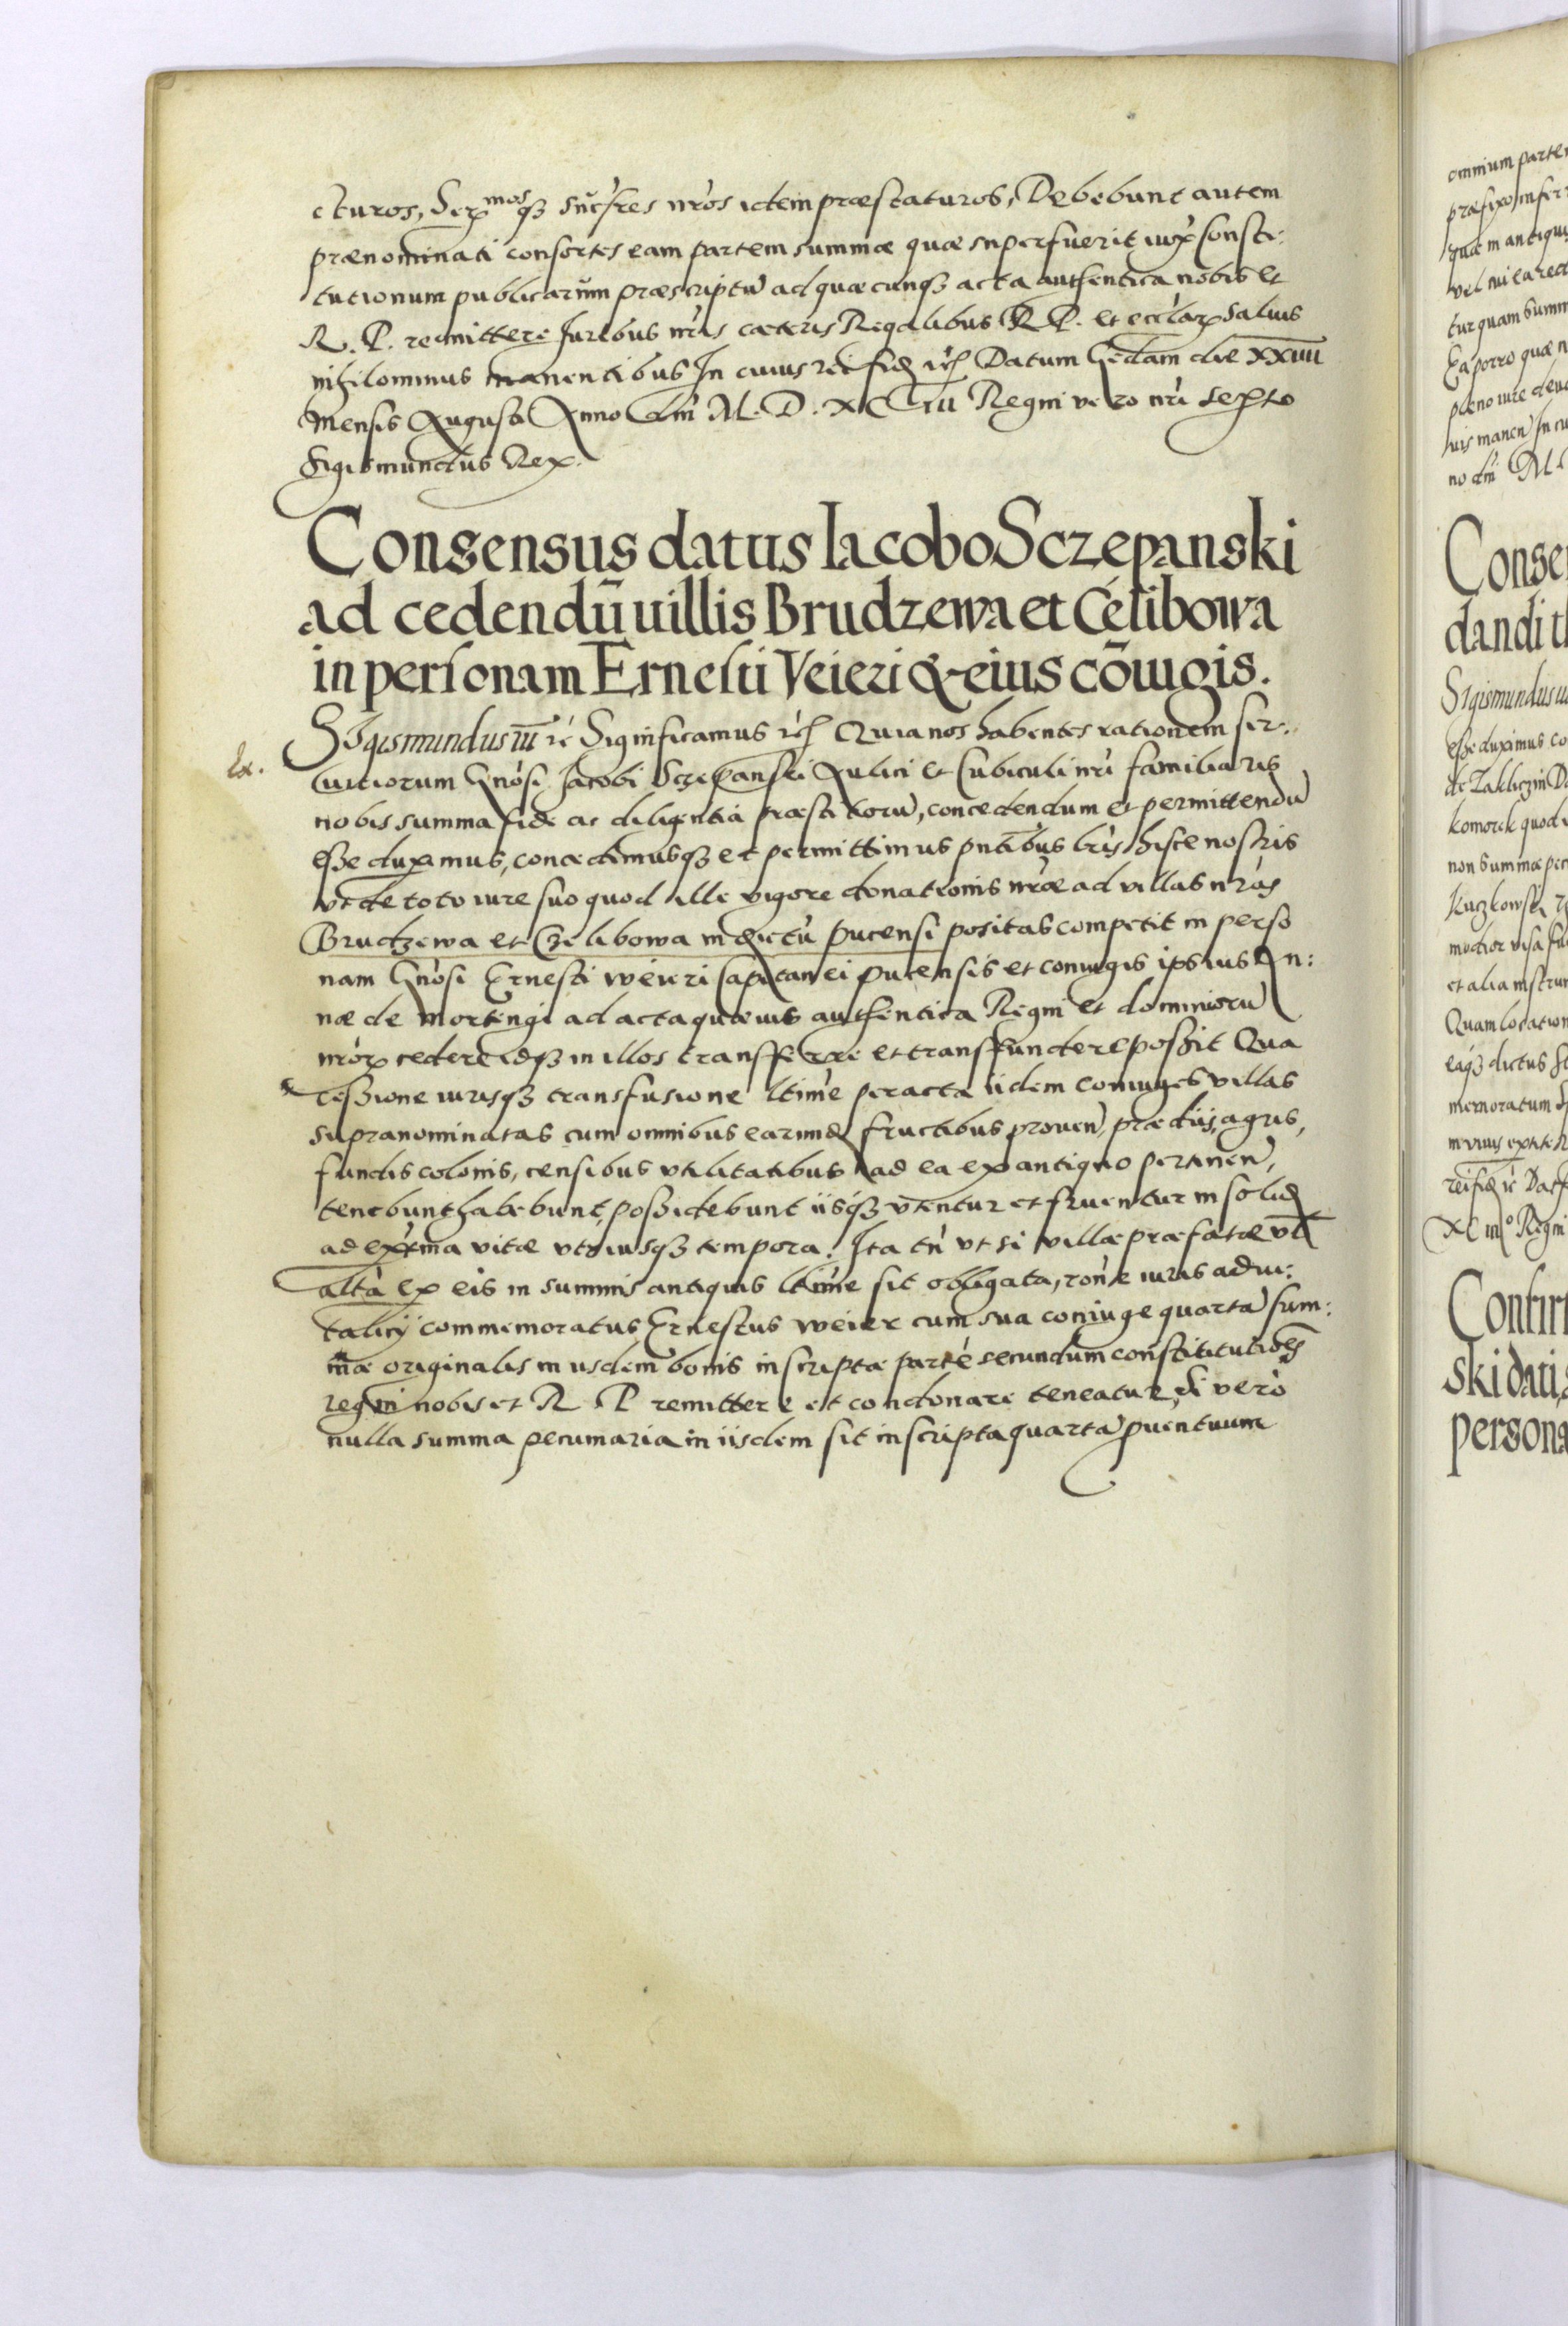 cturos, Sermosqz succres nros idem præstaturos, Debebunt autem
prænominati consortes eam partem summæ quæ superfuerit iux Consti:
tutionum publicarum præscriptũ ad quæcunqz acta authentica nobis et
R. P. remittere Iuribus nris cæteris Regalibus R P. et eccla⁊ saluis
nihilominus manentibus In cuius rei fid etc Datum Gedani die XXIIII
Mensis Augusti Anno dni M. D. XC III Regni vero nri sexto
Sigismundus Rex.
Consensus datus Iacobo Sczepanski
ad cedendū uillis Brudzewa et Celibowa
in personam Ernesti Veieri & eius cōiugis.
Ex.
Sigismundus III etc Significamus etc Quia nos habentes rationem ser:
uitiorum Gnosi Jacobi Sczepanski Aulici et Cubiculi nri familiaris
nobis summa fide ac diligentia præstitorũ, concedendum et permittendũ
esse duximus, concedimusqz et permittimus pntibus lris hisce nostris
vt de toto iure suo quod illi vigore donationis nræ ad villas nras
Brudzewa et Czelibowa in districtũ Pucensi positas competit in perso
nam Gnosi Ernesti Weieri Capitanei Pucensis et coniugis ipsius An:
næ de Mortengi ad acta quæuis authentica Regni et dominiorũ
nror cedere idqz in illos transferre et transfundere possit Qua
cessione iurisqz transfusione ltime peracta iidem coniuges villas
supranominatas cum omnibus earund fructibus prouen, prædiis, agris,
fundis colonis, censibus vtilitatibus ad ea ex antiquo pertinen,
tenebunt habebunt, possidebunt iisqz vtentur et fruentur in solid
ad extrma vitæ vtriusqz tempora. Ita tn vt si villæ præfatæ vl
altra ex eis in summis antiquis ltime sit obligata, rone iuris adui:
talicij commemoratus Ernestus Weier cum sua coniuge quartã sum:
mæ originalis in iisdem bonis inscriptæ partẽ secundum constitutiões
regni nobis et R P remittere et condonare teneatur, Si vero
nulla summa pecuniaria in iisdem sit inscripta quartã puentuum
omnium parte
quam antiqui
tur quam summ
Ea porro quæ n
pleno iure deu
uis manen In cu
no dni M
Conse
dandi t
Sigismundus
esse duximus co
de Zakliczin D
komorek quod
non summæ pec
Kuczkowski
et alia instrum
Quam location
eaqz dictus
memoratum
rei fid etc Dat
XC III° Regni
Confir
ski dati,
persona